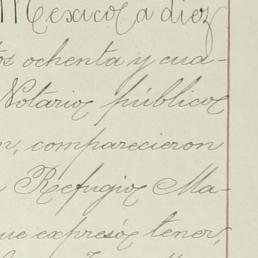 Mexico á diez
os ochenta y cua-
Notario público
n, comparecieron
Refugio Ma-
ue expresó tener,